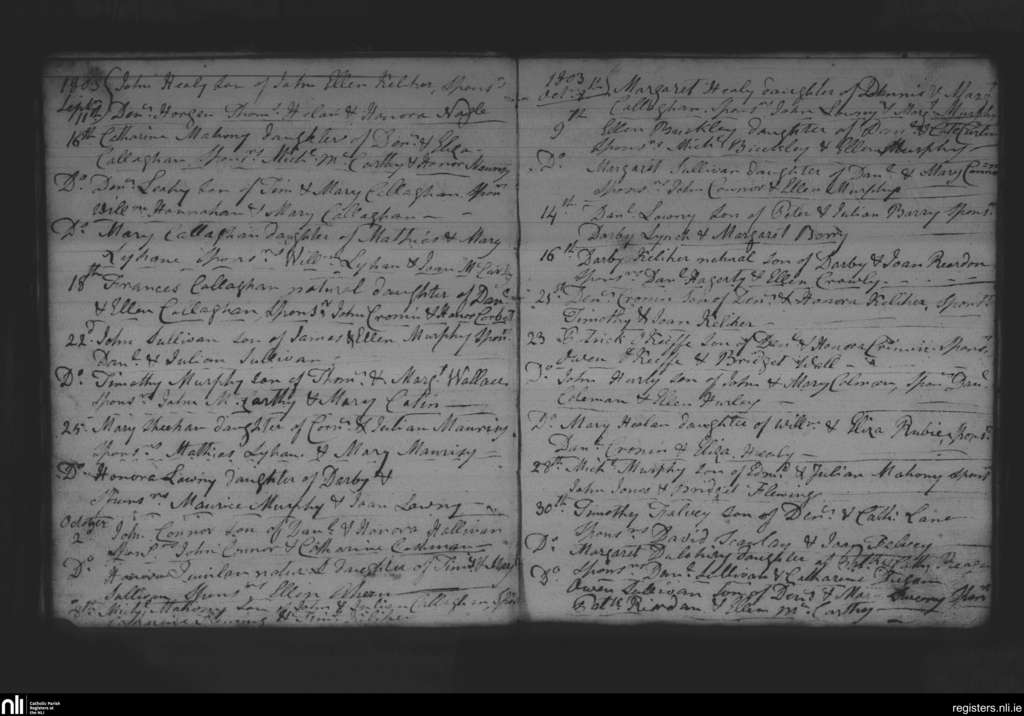 1803 John Healy son of John Ellen Keliher, Spons.rs
Sept.r 11th Den.s Horgan Thom.s Holan & Honora Nagle
16th Catharine Mahony daughter of Den.s & Eliza
Callaghan Spons.rs Mich.l Mc Carthy & Honor
Do. Den.s Leahy son of Tim & Mary Callaghan. Spon.rs
Will.m Hannahan & Mary Callaghan
Do. Mary Callaghan daughter of Mathias & Mary
Lyhane Spons.rs Will.m Lyhan & Joan Mc Carthy
18th Frances Callaghan natural daughter of Dan.l
& Ellen Callaghan, Spons.rs John Cronin & Corbett
22.d John Sullivan son of James & Ellen Murphy Spon.rs
Dan.l & Julian Sullivan
Do. Timothy Murphy son of Thom.s & Marg.t Wallace
Spons.rs John Mc Carthy & Mary
25. Mary Sheehan daughter of Corn.s & Julian
Spons.rs Mathias Lyhan. & Mary
Do. Honora Lawny daughter of Darby &
Spons.rs Maurice Murphy & Joan Lawny
October 2 John Connor son of Dan.l & Honora Hallivan
Spon.rs John Connor & Catharine
Do. Honora natural daughter of Tim.y
Sullivan Spons.rs Ellen Ahern
Mahony son of John & Julian Callaghan
Catharine & Tim.y Keliher
1803 Oct.r 8th Margaret Healy daughter of Dennis & Mary
Callaghan, Spons.rs John & Marg.t Murphy
9th Ellen Buckley daughter of Dan.l &
Spons.rs Mich.l Buckley & Ellen Murphy
Do. Margaret Sullivan daughter of Dan.l & Mary Connor
Spons.rs John Connor & Ellen Murphy
14th Dan.l Lawny son of Peter & Julian Barry Spons.rs
Darby Lynch & Margaret Barry
16th Darby Keliher natural son of Darby & Joan Reardon
Spons.rs Dan.l Hagerty & Ellen Crowly
21st Den.s Cronin son of Den.s & Honora Keliher, Spons.rs
Timothy & Joan Keliher
23 Patrick Keeffe son of Den.s & Honora Spons.rs
Owen Keeffe & Bridget
Do. John Hurly son of John & Mary Colman, Spon.rs Dan.l
Coleman & Ellen Hurley
Do. Mary Healan daughter of Will.m & Eliza Rubie, Spons.rs
Den.s Cronin & Eliza Healy
28th Mich.l Murphy son of Edm.d & Julian Mahony Spons.rs
John Jones & Bridget Fleming
30th Timothy Falvey son of Den.s & Cath. Lane
Spons.rs David & Joan Falvey
Do. Margaret daughter of
Spons.rs Dan.l Sullivan & Catharine
Do. Owen Sullivan son of Den.s & Mary Spon.rs
Riordan & Ellen Mc Carthy
nli Catholic Parish
Registers at
the NLI
registers.nli.ie